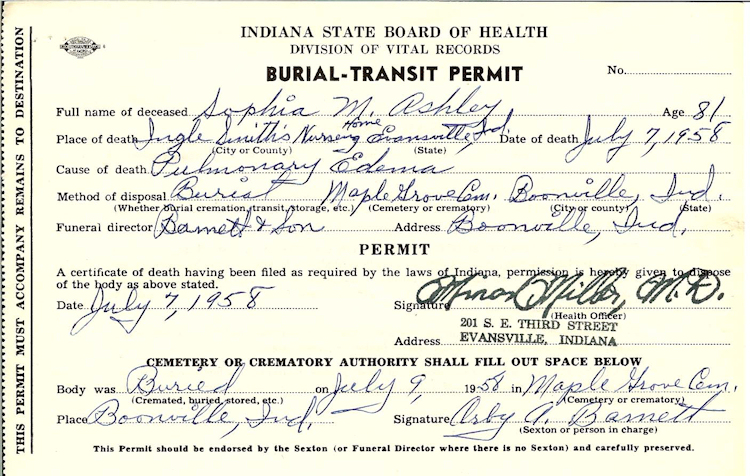 INDIANA STATE BOARD OF HEALTH
DIVISION OF VITAL RECORDS
BURIAL-TRANSIT PERMIT
No.
Full name of deceased Sophia M. Ashley Age 81
Place of death Ingle Smith's Nursing Home Evansville, Ind. Date of death July 7, 1958
(City or County) (State)
Cause of death Pulmonary Edema
Method of disposal Burial Maple Grove Cem. Boonville, Ind.
(Whether burial cremation, transit, storage, etc.) (Cemetery or crematory) (City or county) (State)
Funeral director Barnett & Son Address Boonville, Ind.
PERMIT
A certificate of death having been filed as required by the laws of Indiana, permission is hereby given to dispose
of the body as above stated.
Date July 7, 1958 Signature Miller, M.D.
(Health Officer)
Address 201 S. E. THIRD STREET
EVANSVILLE, INDIANA
CEMETERY OR CREMATORY AUTHORITY SHALL FILL OUT SPACE BELOW
Body was Buried on July 9, 1958 in Maple Grove Cem.
(Cremated, buried, stored, etc.) (Cemetery or crematory)
Place Boonville, Ind. Signature Arby A. Barnett
(Sexton or person in charge)
This Permit should be endorsed by the Sexton (or Funeral Director where there is no Sexton) and carefully preserved.
THIS PERMIT MUST ACCOMPANY REMAINS TO DESTINATION